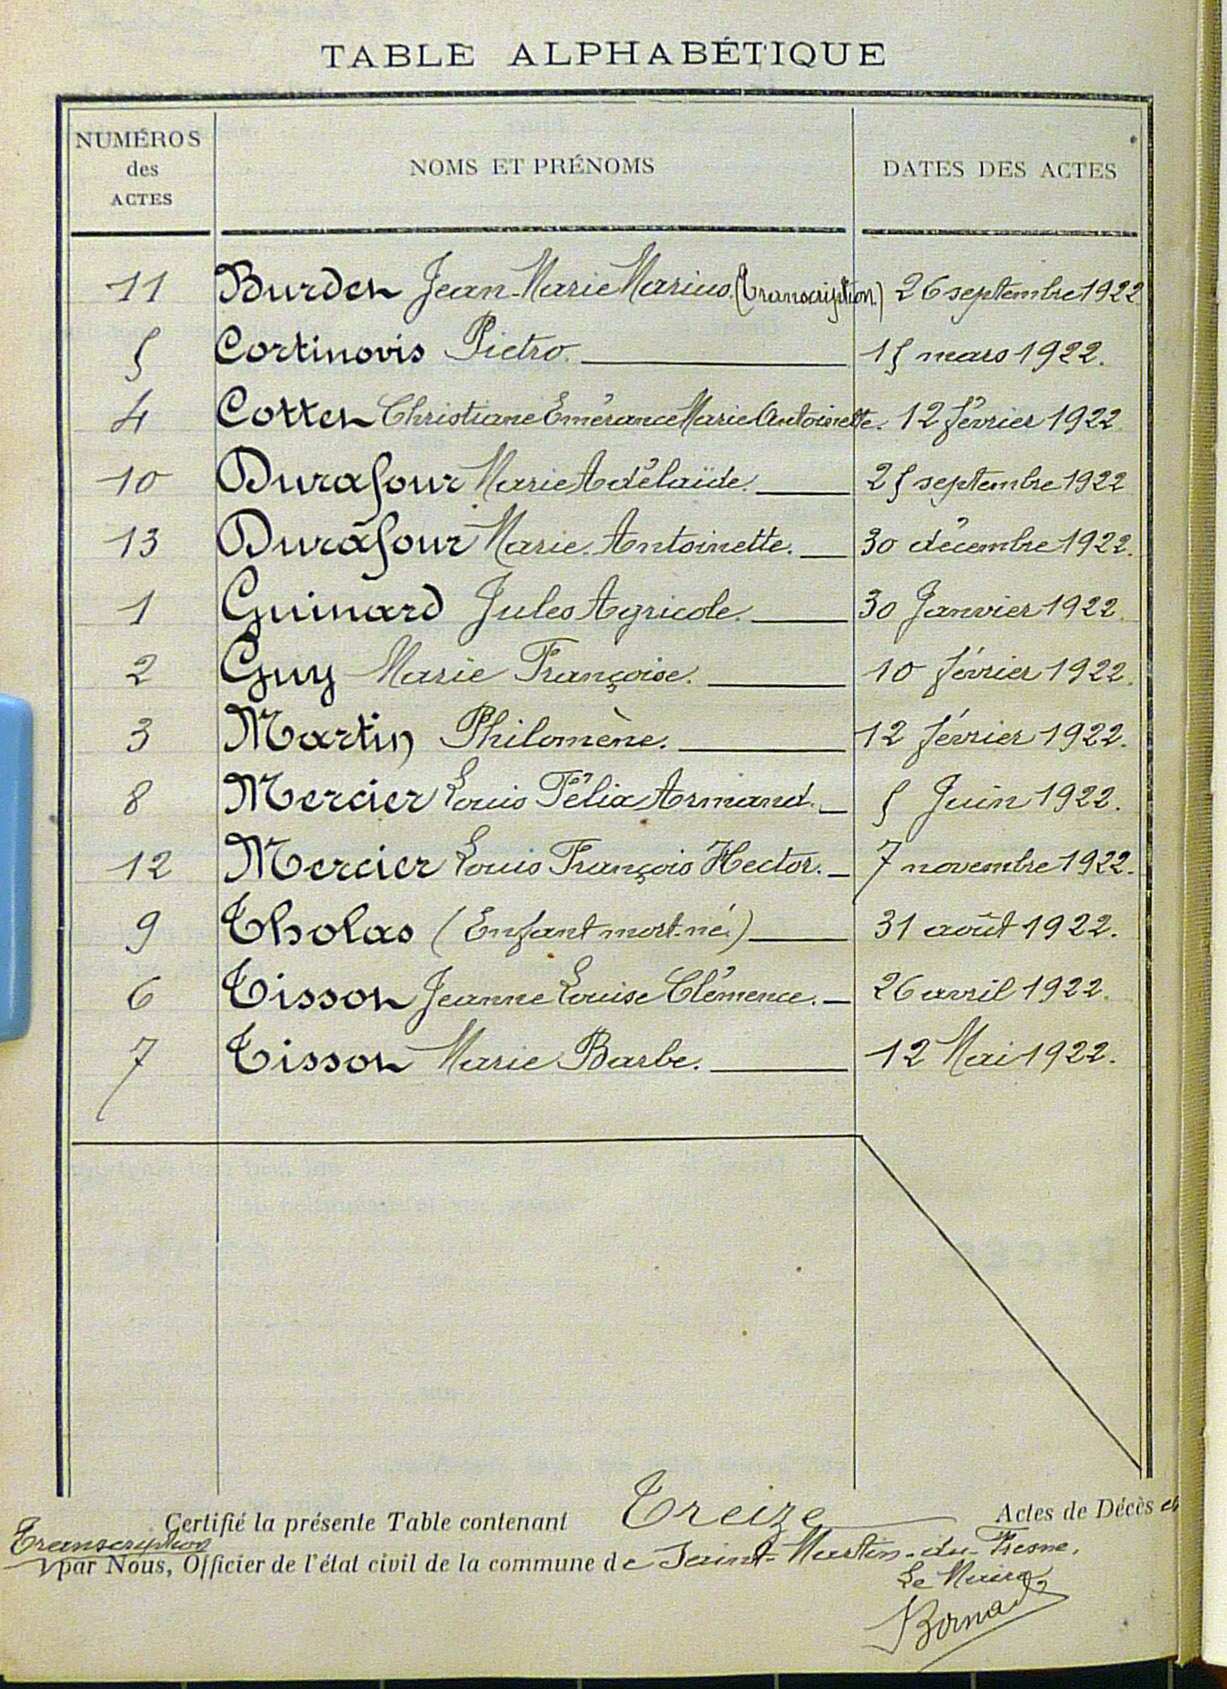 TABLE ALPHABÉTIQUE
NUMÉROS des ACTES NOMS ET PRÉNOMS DATES DES ACTES
11 Burdet Jean-Marie Marius. (Transcription.) 26 septembre 1922
5 Cortinovis Pietro. 15 mars 1922.
4 Cottet Christiane Emérance Marie Antoinette. 12 février 1922
10 Durafour Marie Adélaïde. 25 septembre 1922
13 Durafour Marie Antoinette. 30 décembre 1922.
1 Guinard Jules Agricole. 30 Janvier 1922.
2 Guy Marie Françoise. 10 février 1922.
3 Martin Philomène. 12 février 1922.
8 Mercier Louis Félix Armand. 5 Juin 1922.
12 Mercier Louis François Hector. 7 novembre 1922.
9 Tholas (Enfant mort-né.) 31 août 1922.
6 Tisson Jeanne Louise Clémence. 26 avril 1922.
7 Tisson Marie Barbe. 12 Mai 1922.
Certifié la présente Table contenant Treize Actes de Décès et
Transcription
par Nous, Officier de l'état civil de la commune de Saint-Martin-du-Fresne.
Le Maire